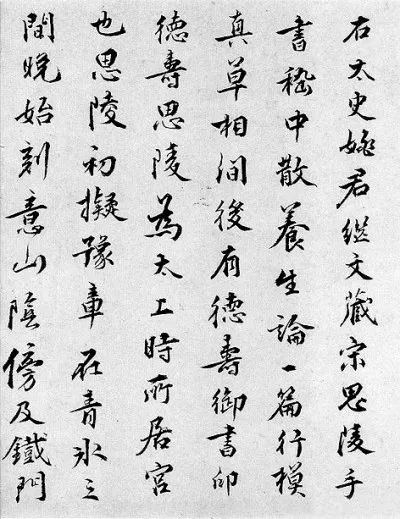 右太史姚君継文藏宋思陵手
書嵇中散養生論一篇行模
真草相間後有德壽御書印
德壽思陵為太上時所居宮
也思陵初擬豫章在青氷之
間晚始刻意山陰傍及鐵門